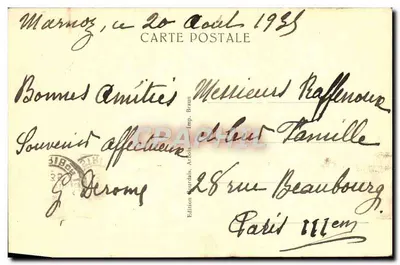 Marnoz, le 20 Août 1935
CARTE POSTALE
Bonnes Amitiés
Souvenir affectueux
G Derome
Messieurs Raffenoux
et leur Famille
28 rue Beaubourg
Paris IIIem